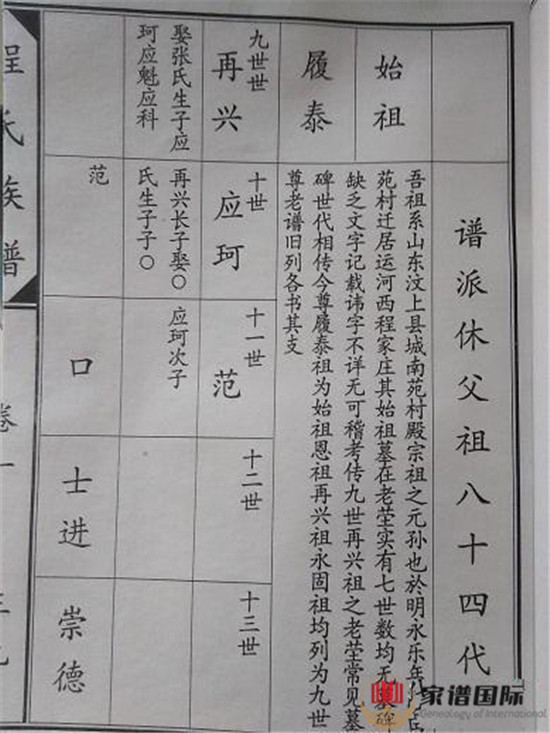 谱派休父祖八十四代
始祖
履泰
吾祖系山东汶上县城南苑村殿宗祖之元孙也於明永乐年
苑村迁居运河西程家庄其始祖墓在老茔实有七世数均无
碑
缺乏文字记载讳字不详无可稽考传九世再兴祖之老茔常见墓
碑世代相传今尊履泰祖为始祖恩祖再兴祖永固祖均列为九世
尊老谱旧列各书其支
九世世
再兴
娶张氏生子应
珂应魁应科
十世
应珂
再兴长子娶〇
氏生子子〇
范
十一世
范
应珂次子
口
十二世
士进
十三世
崇德
程氏族谱
卷一
家谱国际
Genealogy of International